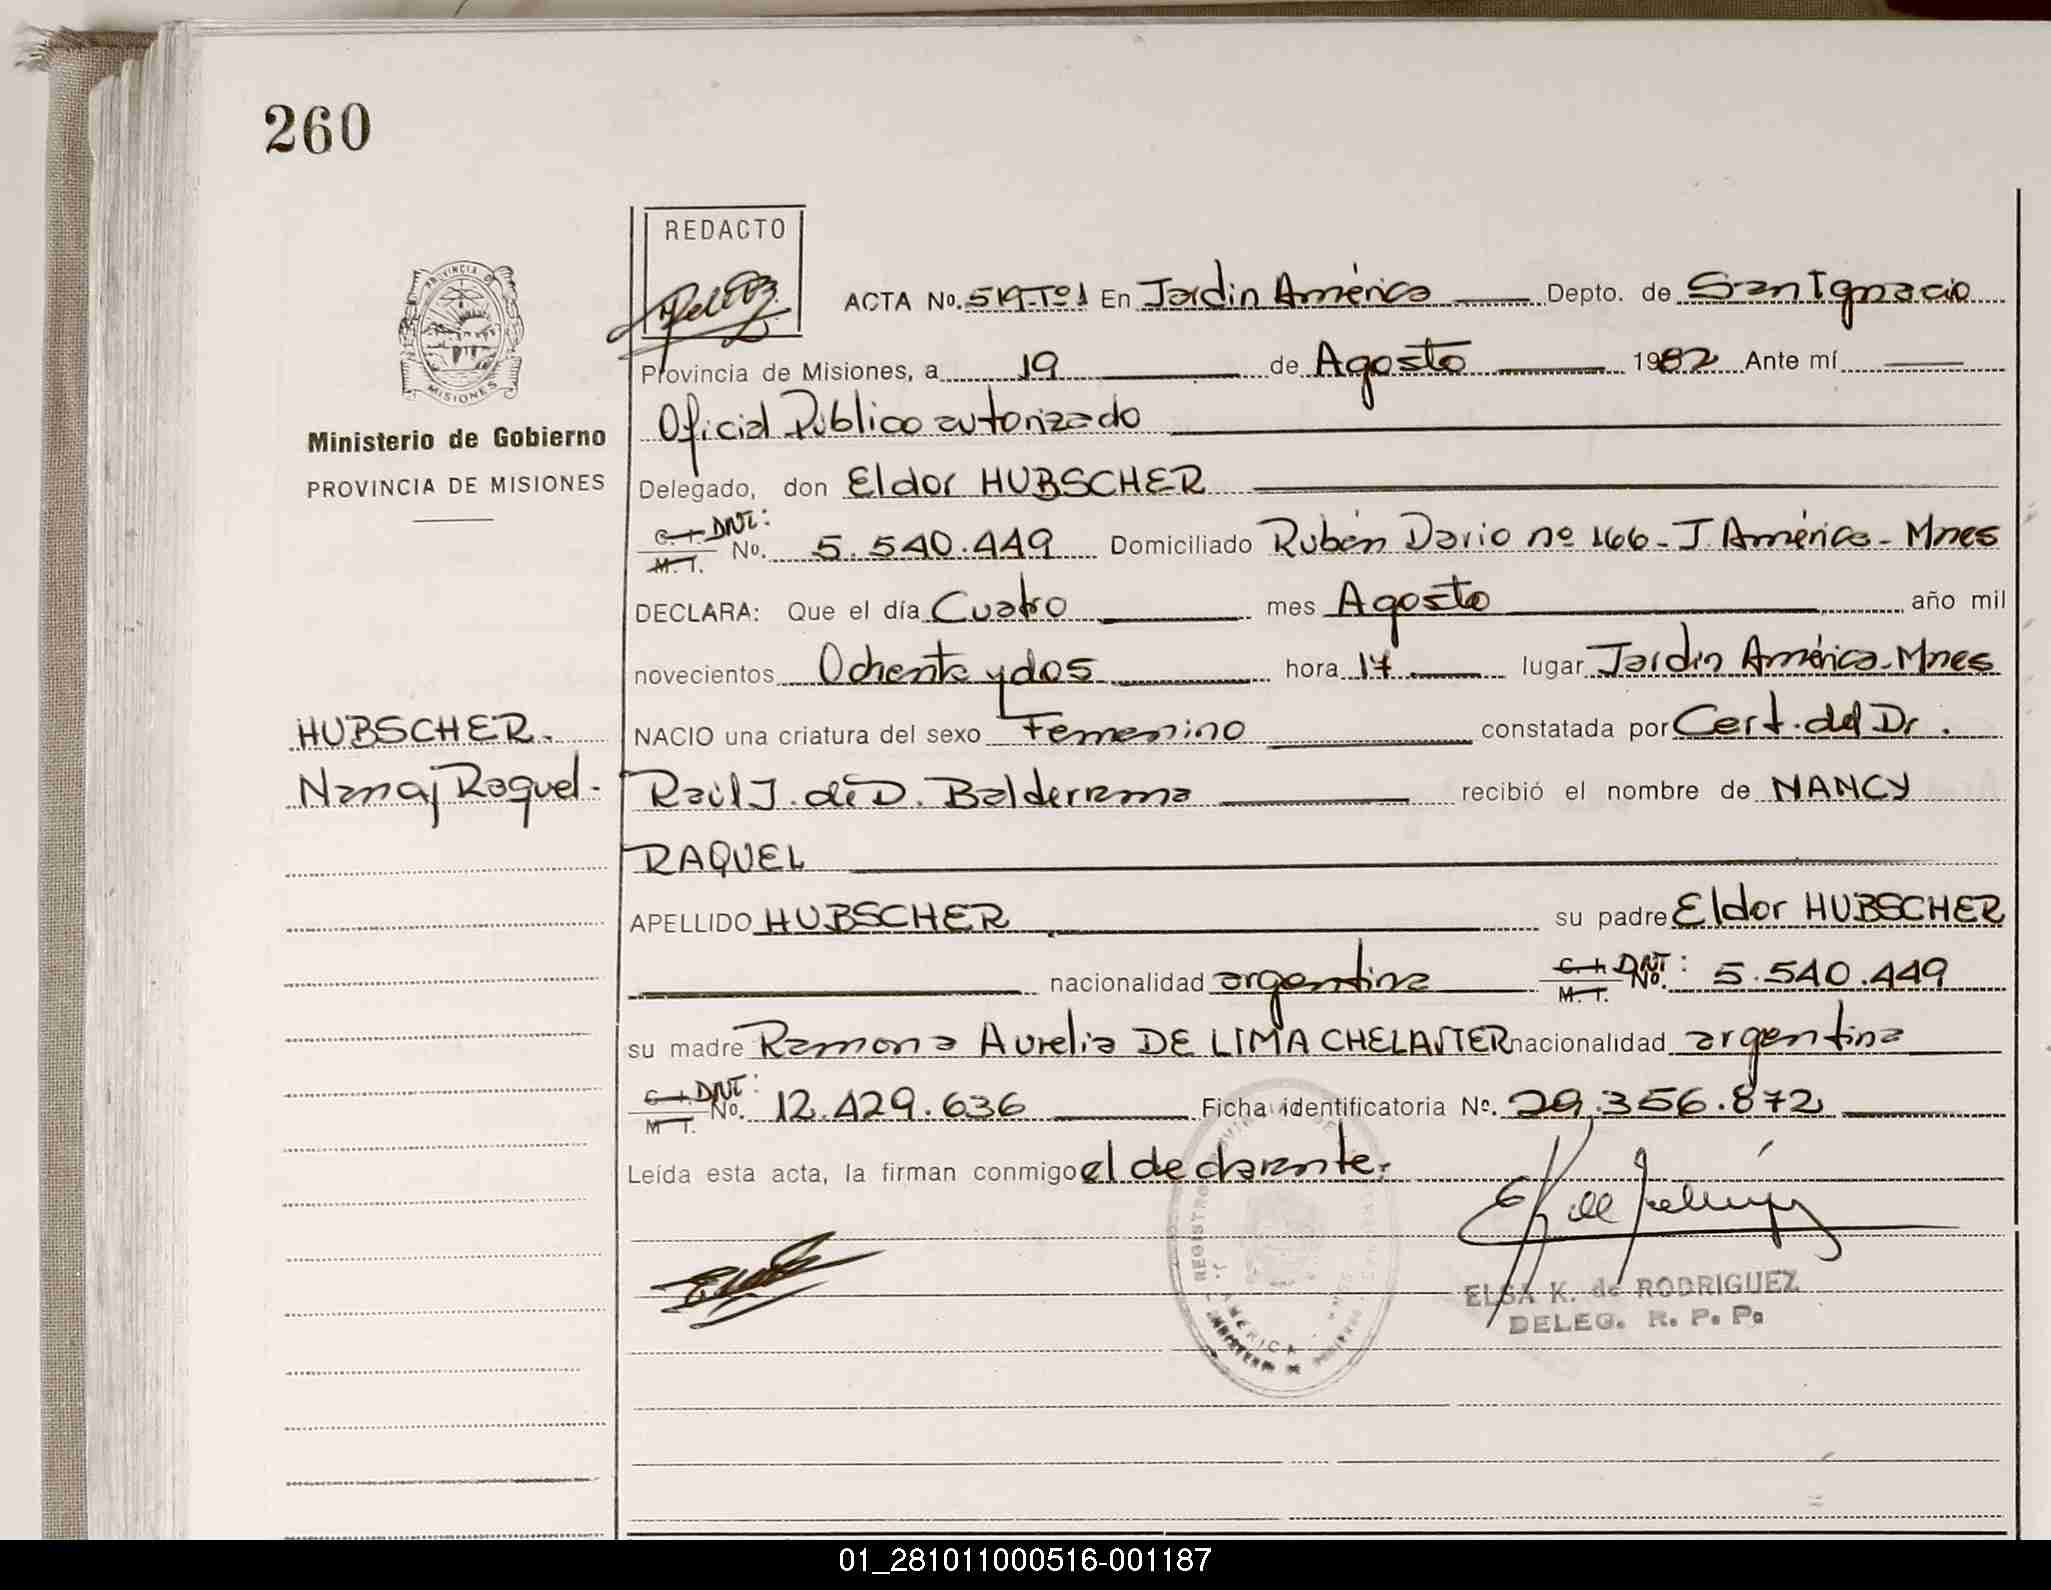 260
REDACTO
PROVINCIA DE
MISIONES
ACTA No. 519-Tº1 En Jardin América Depto. de San Ignacio
Provincia de Misiones, a 19 de Agosto 1982 Ante mí
Oficial Publico autorizado
Ministerio de Gobierno
PROVINCIA DE MISIONES
Delegado, don Eldor HUBSCHER
C. I. DNI:
M. I. No. 5.540.449 Domiciliado Rubén Dario nº 166 - J. América - Mnes
DECLARA: Que el día Cuatro mes Agosto año mil
novecientos Ochenta y dos hora 17 lugar Jardin América - Mnes
HUBSCHER.
NACIO una criatura del sexo Femenino constatada por Cert. del Dr.
Nancy Raquel.
Raúl J. de D. Balderrama recibió el nombre de NANCY
RAQUEL
APELLIDO HUBSCHER su padre Eldor HUBSCHER
nacionalidad argentina C. I. DNI: M. I. No. 5.540.449
su madre Ramona Aurelia DE LIMA CHELASTER nacionalidad argentina
C. I. DNI: M. I. No. 12.429.636 Ficha identificatoria Nº. 29.356.872
Leída esta acta, la firman conmigo el declarante.
REGISTRO
AMERICA
MINISTERIO DE
ELSA K. de RODRIGUEZ
DELEG. R. P. P.
01_281011000516-001187